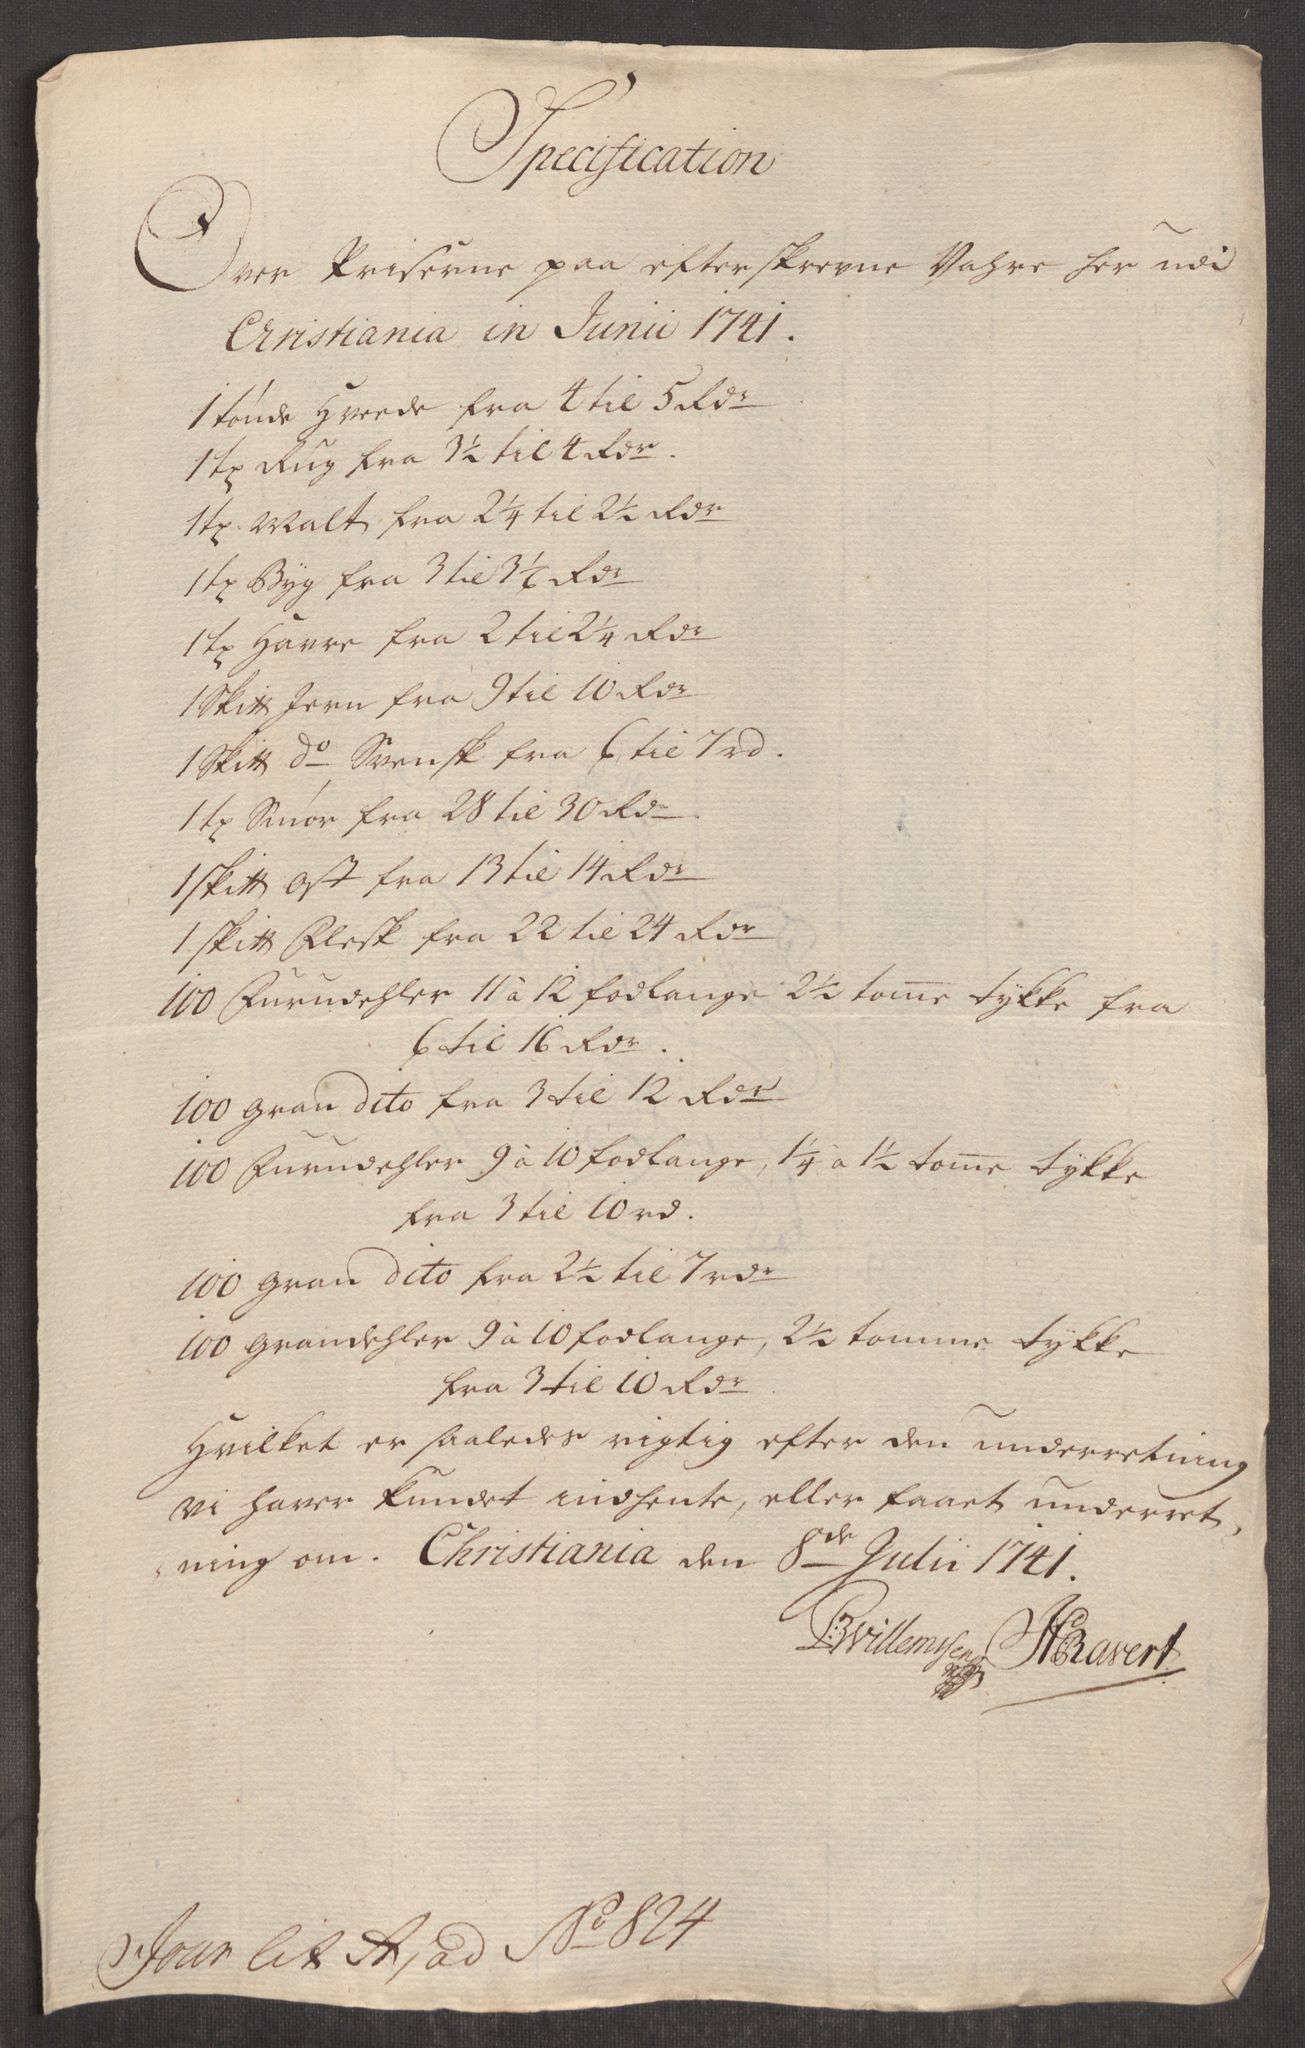 Specification
Over Priserne paa efterskrevne Vahre her udi
Christiania in Junii 1741.
1 tónde Hveede fra 4 til 5 Rdr
1 tr Rug fra 3½ til 4 Rdr.
1 tr Malt fra 2¼ til 2½ Rdr
1 tr Byg fra 3 til 3½ Rdr
1 tr Havre fra 2 til 2¼ Rdr
1 Skitt Jern fra 9 til 10 Rdr
1 Skitt do Svensk fra 6 til 7 rd.
1 tr Smór fra 28 til 30 Rdr.
1 skitt Ost fra 13 til 14 Rdr
1 skitt Flesk fra 22 til 24 Rdr
100 Furudehler 11 à 12 fodlange 2½ tomme tykke fra
6 til 16 Rdr.
100 gran dito fra 3 til 12 Rdr
100 Furudehler 9 à 10 fodlange, 1¼ à 1½ tomme tykke
fra 3 til 10 rd.
100 gran dito fra 2½ til 7 rdr
100 grandehler 9 à 10 fodlange, 2½ tomme tykke
fra 3 til 10 Rdr
Hvilket er saaledes rigtig efter den underretning
vi haver kundet indhente, eller faaet underret,
ning om. Christiania den 8de Julii 1741.
Willemsen Ravert
Jour lit A, ad No 824